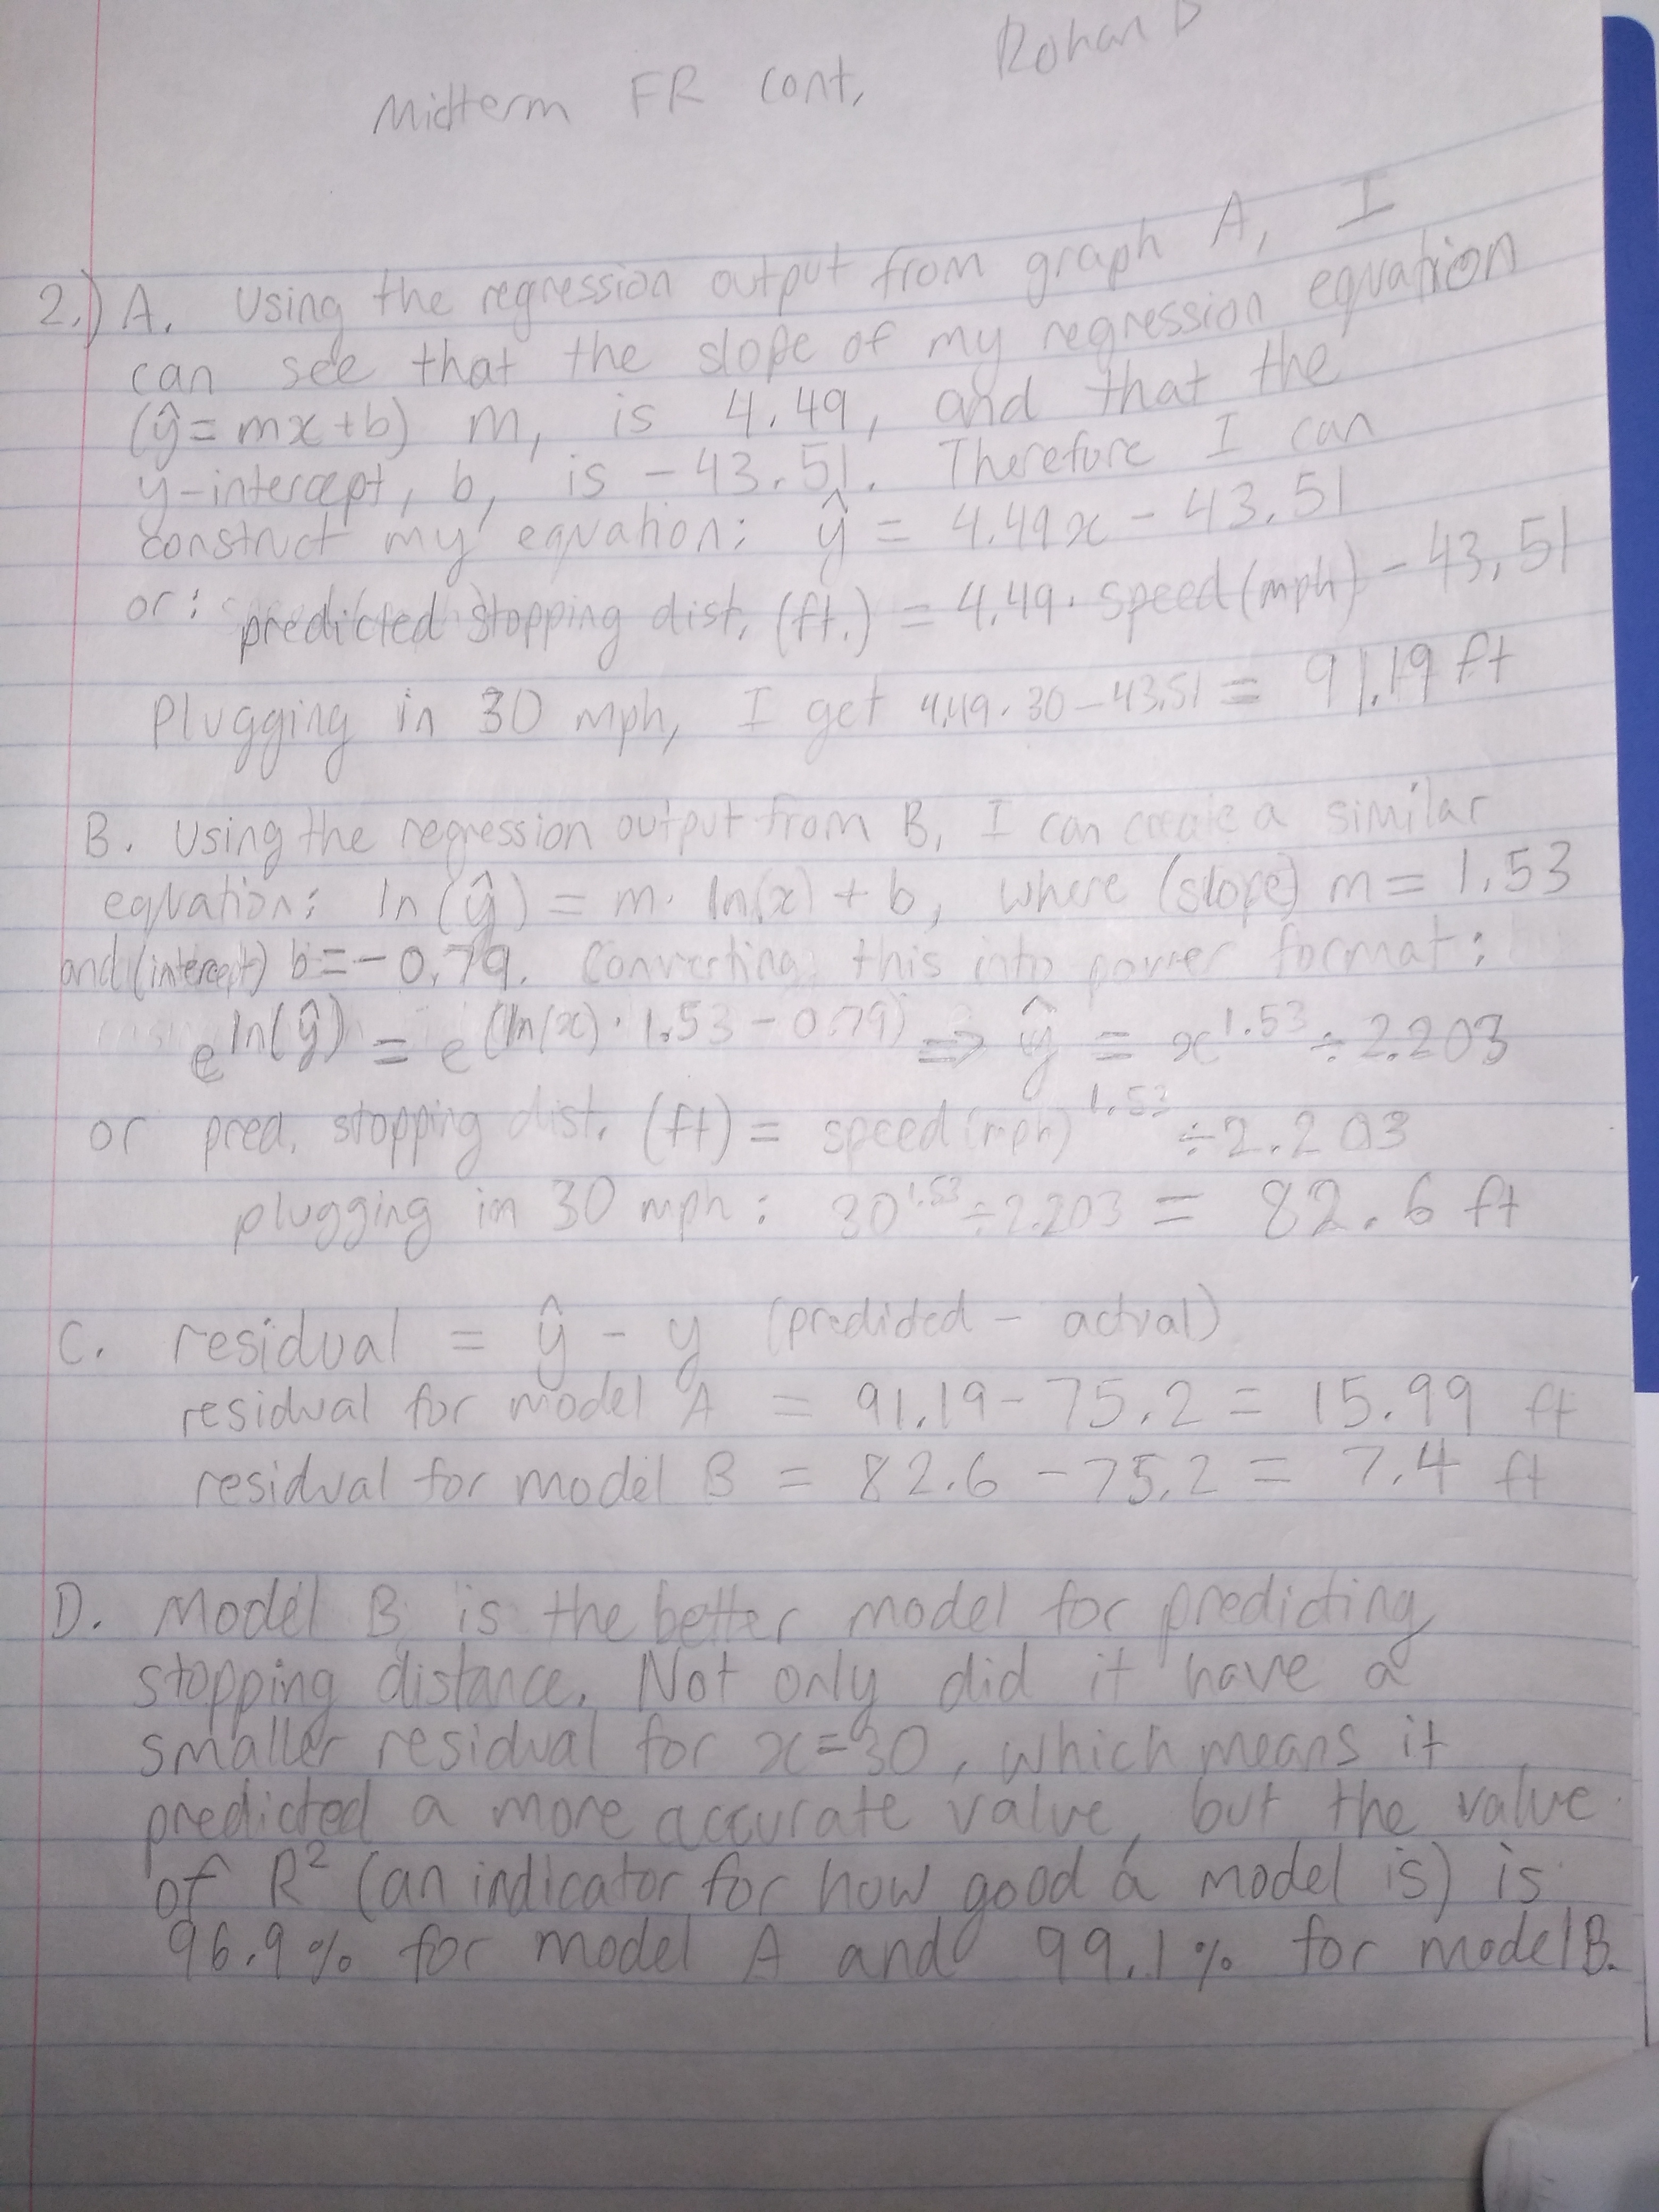 Midterm FR cont,
Rohan D
2.) A. Using the regression output from graph A, I
can see that the slope of my regression equation
(ŷ=mx+b) m, is 4.49, and that the
y-intercept, b, is -43.51. Therefore I can
construct my equation: ŷ = 4.49x - 43.51
or: predicted stopping dist. (ft.) = 4.49 · speed (mph) - 43.51
Plugging in 30 mph, I get 4.49 · 30 - 43.51 = 91.19 ft
B. Using the regression output from B, I can create a similar
equation: ln(ŷ) = m · ln(x) + b, where (slope) m = 1.53
and (intercept) b = -0.79. Converting this into power format:
e^ln(ŷ) = e^(ln(x) · 1.53 - 0.79) => ŷ = x^1.53 ÷ 2.203
or pred. stopping dist. (ft) = speed (mph)^1.53 ÷ 2.203
plugging in 30 mph: 30^1.53 ÷ 2.203 = 82.6 ft
C. residual = ŷ - y (predicted - actual)
residual for model A = 91.19 - 75.2 = 15.99 ft
residual for model B = 82.6 - 75.2 = 7.4 ft
D. Model B is the better model for predicting
stopping distance. Not only did it have a
smaller residual for x=30, which means it
predicted a more accurate value, but the value
of R² (an indicator for how good a model is) is
96.9% for model A and 99.1% for model B.